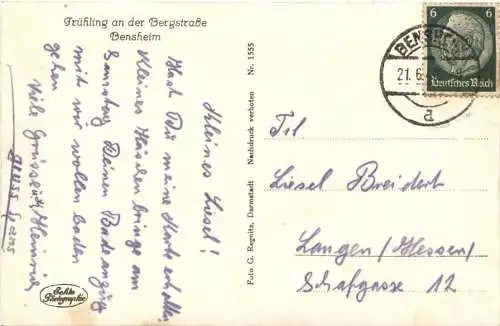 Frühling an der Bergstraße
Bensheim
Kleines Liesel!
Hast Du meine Karte erhalten
Kleines Häschen bringe am
Samstag Deinen Badeanzug
mit wir wollen baden
gehen
Viele Grüsse Heinrich
Gruss
Echte
Photographie
Foto G. Regnitz, Darmstadt Nachdruck verboten Nr. 1555
BENSHEIM
21.6.
a
6 6
Deutsches Reich
Frl
Liesel Breidert
Langen (Hessen)
Schafgasse 12